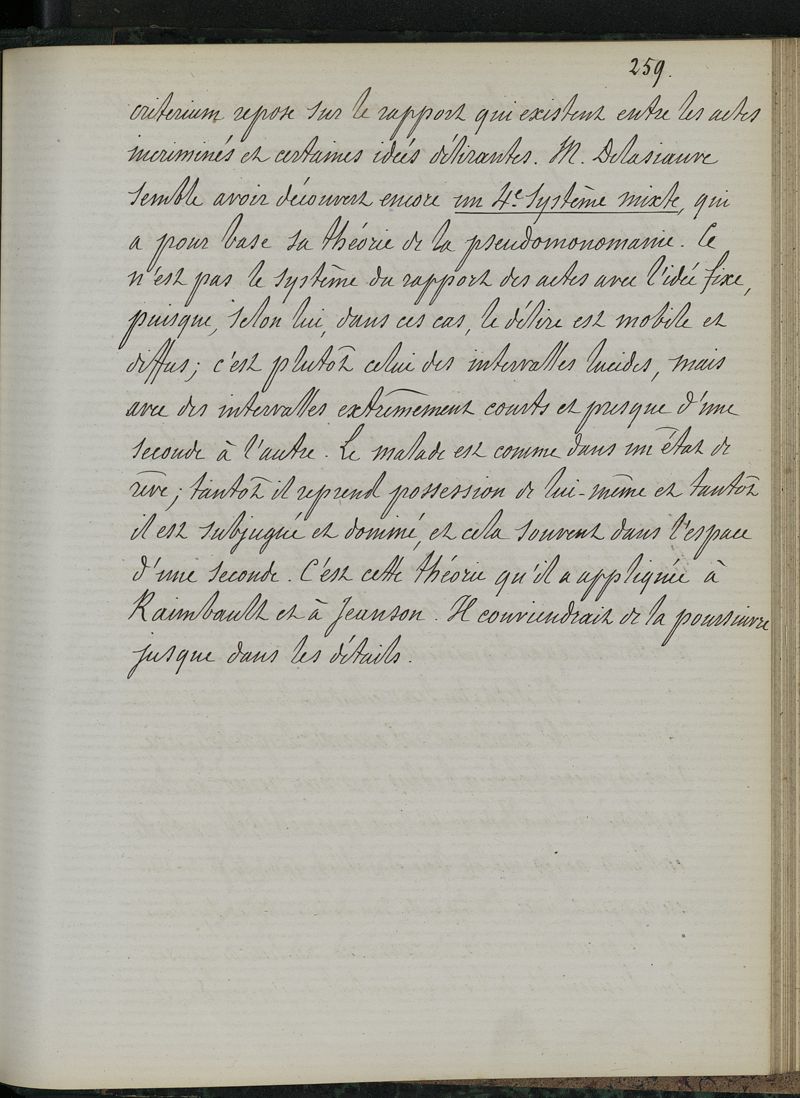 259.
criterium repose sur le rapport qui existent entre les actes
incriminés et certaines idées délirantes. M. Delasiauve
semble avoir découvert encore un 4e système mixte, qui
a pour base sa théorie de la pseudomonomanie. Ce
n'est pas le système du rapport des actes avec l'idée fixe,
puisque, selon lui, dans ces cas, le délire est mobile et
diffus; c'est plutôt celui des intervalles lucides, mais
avec des intervalles extrêmement courts et presque d'une
seconde à l'autre. Le malade est comme dans un état de
rêve; tantôt il reprend possession de lui-même et tantôt
il est subjugué et dominé, et cela souvent dans l'espace
d'une seconde. C'est cette théorie qu'il a appliquée à
Raimbault et à Jeanson. Il conviendrait de la poursuivre
jusque dans les détails.